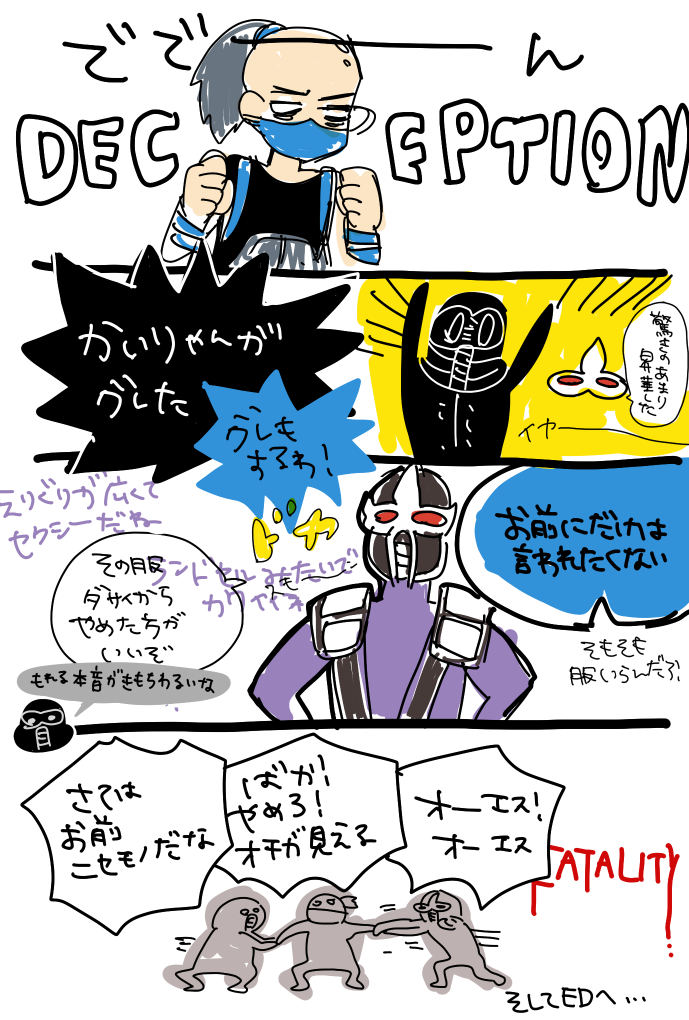 でで――ん
DECEPTION
かいりゃんが
グレた
グレも
するわ!
驚きのあまり
昇華した
イヤー
えりぐりが広くて
セクシーだね
ドヤ
お前にだけは
言われたくない
ランドセルみたいで
カワイイネ
その服
ダサイから
やめたちが
いいぞ
そもそも
服いらんだろ
もれる本音がきもちわるいな
オーエス!
オーエス
ばか!
やめろ!
オチが見える
さては
お前
ニセモノだな
FATALITY
そしてEDへ…